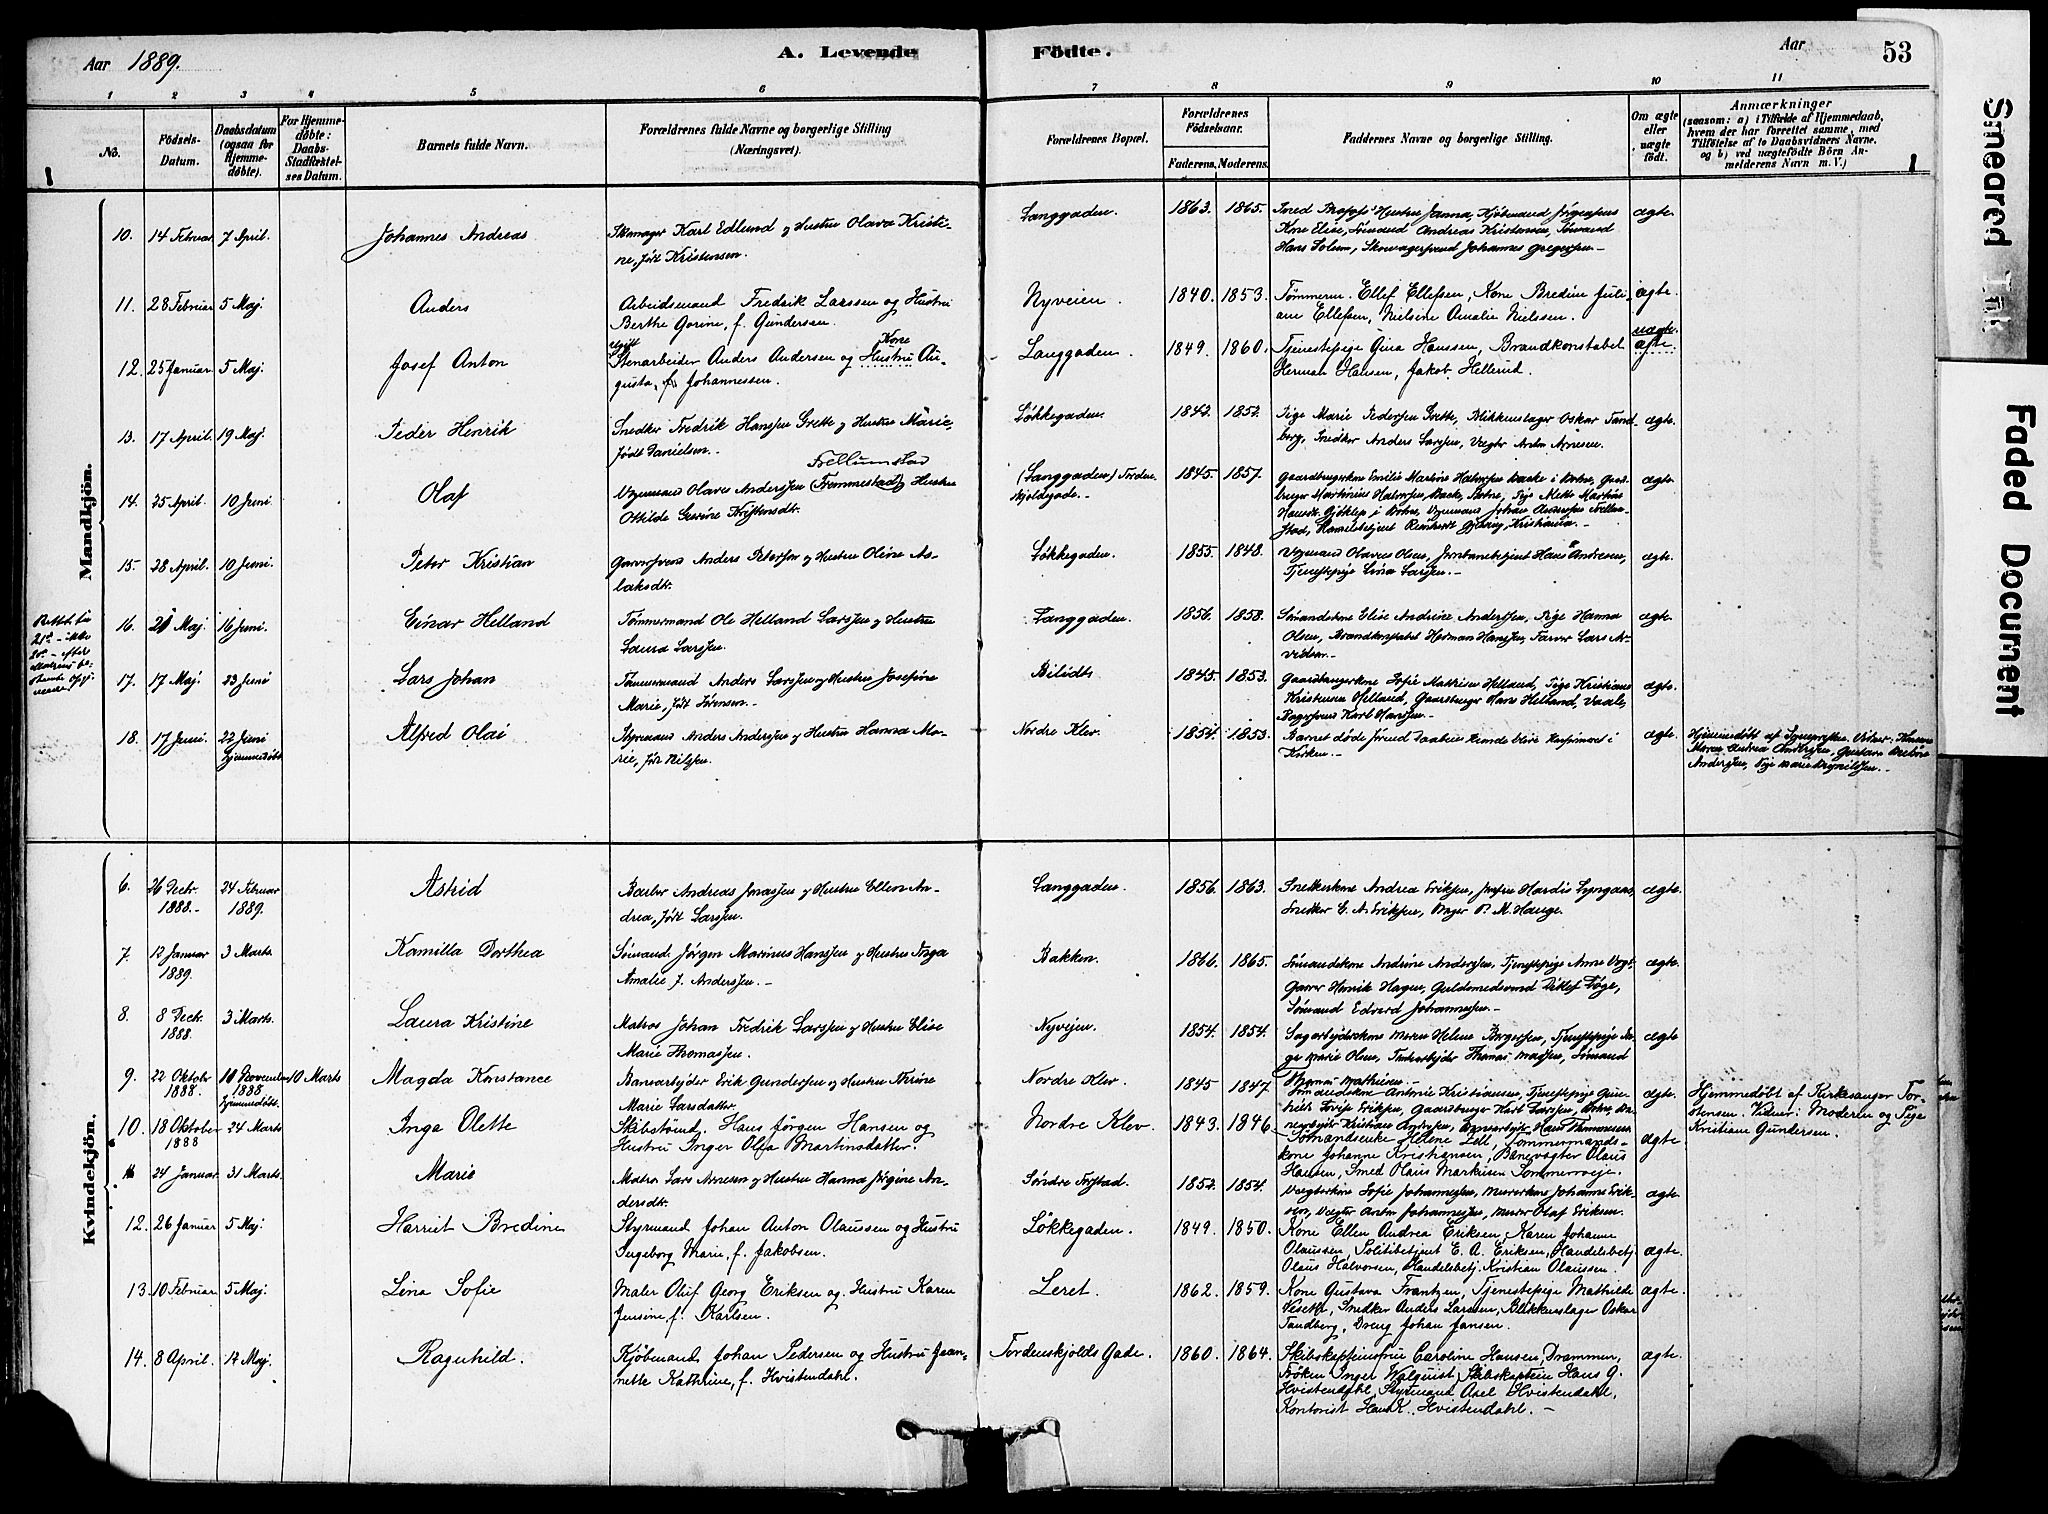 Aar 1889.
A. Levende
Födte.
Aar
53
1 2 3 4 5 6 7 8 9 10 11
No.
Födsels-
Datum.
Daabsdatum
(ogsaa for
Hjemme-
döbte).
For Hjemme-
döbte:
Daabs-
Stadfæstel-
ses Datum.
Barnets fulde Navn.
Forældrenes fulde Navne og borgerlige Stilling
(Næringsvei).
Forældrenes Bopæl.
Forældrenes
Födselsaar.
Faderens. Moderens.
Faddernes Navne og borgerlige Stilling.
Om ægte
eller
uægte
födt.
Anmærkninger
(saasom: a) i Tilfælde af Hjemmedaab,
hvem der har forrettet samme, med
Tilföielse af to Daabsvidners Navne,
og b) ved uægtefödte Börn An-
melderens Navn m. V.)
Mandkjön.
10. 14 Februar 7 April. Johannes Andreas
Skomager Karl Edlund og Hustru Olava Kristi-
ne, født Kristensen.
Langgaden. 1863. 1865.
Hustru Janna, Kjøbmand Jørgensens
Kone Elise, Sømand Andreas Kristensen, Sømand
Hans Solem, Skomagersvend Johannes Gregersen.
ægte.
11. 28 Februar 5 Maj. Anders
Arbeidsmand Fredrik Larssen og Hustru
Berthe Gorine, f. Gundersen.
Nyveien. 1840. 1853.
Tømmerm. Ellef Ellefsen, Kone Bredine Juli-
ane Ellefsen, Nielsine Amalie Nielssen.
ægte.
12. 25 Januar 5 Maj. Josef Anton
ugift Kone
Stenarbeider Anders Andersen og Hustru Au-
gusta, f. Johannessen.
Langgaden. 1849. 1860.
Tjenestepige Gina Hanssen, Brandkonstabel
Herman Hansen, Jakob Hellerud.
uægte.
ægte
13. 17 April. 19 Maj. Peder Henrik
Snedker Fredrik Hanssen Grette og Hustru Marie,
født Danielsen.
Løkkegaden. 1842. 1852.
Pige Marie Pedersen Grette, Blikkenslager Oskar Tand-
berg, Snedker Anders Larssen, Vægter Anton Arnesen.
ægte.
14. 25 April. 10 Juni. Olaf
Frellumstad
Vognmand Olaves Anderssen (Frommestad) og Hustru
Ottilde Gurine Kristensdt.
(Langgaden) Torden-
skjoldsgade. 1845. 1857.
Gaardbrugerkone Emilie Martine Halvorsen Bakke i Botne, Gaard-
bruger Martinius Halvorsen Bakke, Botne, Pige Mette Martine
i Botne, Vognmand Johan Anderssen Frellum-
stad, Handelsbetjent Kristiania.
ægte.
15. 28 April. 10 Juni. Peter Kristian
Garversvend Anders Peterssen og Hustru Oline As-
laksdt.
Løkkegaden. 1855. 1848.
Vognmand Olaves Olsen, Jernbanebetjent Hans Andresen,
Tjenestepige Lina Larssen.
ægte.
16. 21 Maj. 16 Juni. Einar Helland
Tømmermand Ole Helland Larssen og Hustru
Laura Larssen.
Langgaden. 1856. 1858.
Sømandskone Elise Andrine Anderssen, Pige Hanna
Olsen, Brandkonstabel Herman Hanssen, Lars Ar-
vedsen.
ægte.
Rettet til
21de - ikke
20de - efter
Moderens be-
stemte Opgi-
vende.
17. 17 Maj 23 Juni Lars Johan
Tømmermand Anders Larssen og Hustru Josefine
Marie, født Sørensen.
Bilidt. 1845. 1853.
Gaardbrugerkone Sofie Mathisen Helland, Pige Kristiane
Kristensen Helland, Gaardbruger Hans Helland, Vaale,
Bagersvend Karl Hanssen.
ægte.
18. 17 Juni. 22 Juni Hjemmedøbt. Alfred Olai
Styrmand Anders Anderssen og Hustru Hanna Ma-
rie, født Nilssen.
Nordre Klev. 1854. 1853.
Barnet døde førend Daaben kunde blive konfirmeret i
Kirken.
ægte.
Hjemmedøbt af
Maren Andrea Anderssen, Gustava
Anderssen, Pige Marie
Kvindekjön.
6. 26 Decbr. 1888. 24 Februar 1889. Astrid
Barber Andreas Jonassen og Hustru Ellen An-
drea, født Larssen.
Langgaden. 1856. 1863.
Snedkerkone Andrea Erikssen, Jomfru Hardis Lyngaas,
Snedker E. A. Erikssen, Bager P. M. Hauge.
ægte.
7. 12 Januar 1889. 3 Marts. Kamilla Dorthea
Sømand Jørgen Marinus Hanssen og Hustru Inga
Amalie f. Anderssen.
Bakken. 1866. 1865.
Sømandskone Andrine Anderssen, Tjenestepige Anne Vogt,
Garver Henrik Hagen, Guldsmedsvend Ditlef Føge,
Sømand Edvard Johannessen.
ægte.
8. 8 Decbr. 1888. 3 Marts. Laura Kristine
Matros Johan Fredrik Larssen og Hustru Elise
Marie Thomassen.
Nyvejen. 1854. 1854.
Sagarbejderskone Maren Helene Børgessen, Tjenestepige In-
ger Marie Olsen, Thomas Madsen, Sømand
Thomas Mathisen
ægte
9. 22 Oktobr 1888. 10 November 1888 Hjemmedøbt. 10 Marts Magda Konstance
Banearbejder Erik Gundersen og Hustru Thrine
Marie Larsdatter.
Nordre Klev. 1845 1847
Sømandskone Antonie Kristiansen, Tjenestepige Gun-
hild Sovie Erikssen, Gaardbruger Karl Larssen, Botne, Ba-
nearbejder Kristian Andersen, Banearbejder Hans Thommesen.
ægte.
Hjemmedøbt af Kirkesanger Tor-
stensen. Vidner: Moderen og Pige
Kristiane Gundersen.
10. 18 Oktober 1888 24 Marts Inga Olette
Skibstømd. Hans Jørgen Hansen og
Hustru Inger Olea Martinsdatter.
Nordre Klev. 1843. 1846.
Sømandsenke Helene Zell, Tømmermands-
kone Johanne Kristiansen, Banevogter Olaus
Hansen, Smed Olaus Markusen Sommerveje.
ægte
11. 24 Januar 31 Marts. Marie
Matros Lars Arnesen og Hustru Hanna Jørgine An-
dersdt.
Søndre Trystad. 1852. 1854.
Vægterkone Sofie Johannessen, Murerkone Johanne Erik-
sen, Vægter Anton Johannessen, Murer Olaf Eriksen.
ægte.
12. 26 Januar 5 Maj. Harriet Bredine
Styrmand Johan Anton Olaussen og Hustru
Ingeborg Marie, f. Jakobsen.
Løkkegaden. 1849. 1850.
Kone Ellen Andrea Eriksen, Karen Johanne
Olaussen, Politibetjent E. A. Eriksen, Handelsbetj.
Olaus Halvorsen, Handelsbetj. Kristian Olaussen.
ægte.
13. 10 Februar 5 Maj. Lina Sofie
Maler Oluf Georg Eriksen og Hustru Karen
Jensine, f. Karlsen.
Leret. 1862. 1859.
Kone Gustava Frantzen, Tjenestepige Mathilde
Viseth, Snedker Anders Larssen, Blikkenslager Oskar
Tandberg, Dreng Johan Jansen.
ægte.
14. 8 April. 14 Maj. Ragnhild.
Kjøbmand Johan Pedersen og Hustru Jean-
nette Kathrine, f. Hvistendahl.
Tordenskjolds Gade. 1860. 1864.
Skibskapteinsfrue Caroline Hansen, Drammen,
Frøken Inger Walquist, Skibskaptein Hans G.
Hvistendahl, Styrmand Axel Hvistendahl,
Kontorist Hans K. Hvistendahl.
ægte.
Smeared Ink
Faded Document